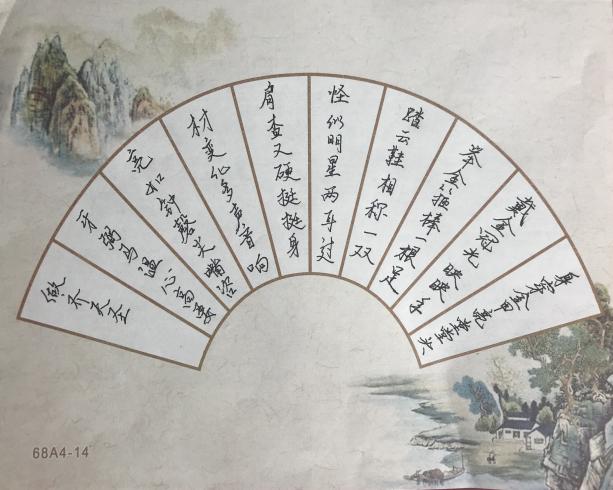 身穿金甲亮堂堂头
戴金冠光映映手
举金箍棒一根足
踏云鞋相称一双
怪似明星两耳过
肩查又硬挺挺身
材变化多声音响
亮如钟磬尖嘴咨
牙弼马温心高要
做齐天圣
68A4-14